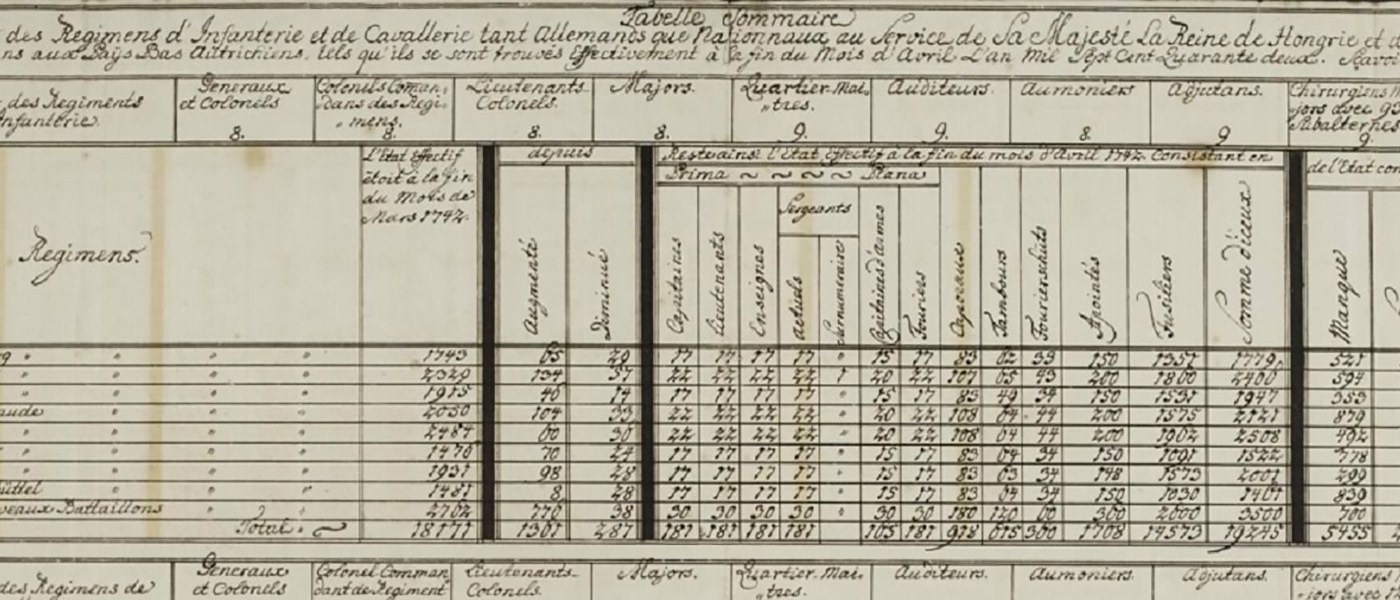 Tabelle Sommaire
des Regimens d'Infanterie et de Cavallerie tant Allemands que Nationnaux au Service de Sa Majesté La Reine de Hongrie et d
ns aux Païs Bas Autrichiens. tels qu'ils se sont trouvés Effectivement à la fin du Mois d'Avril L'an Mil Sept Cent Quarante deux. Savoi
des Regiments
nfanterie.
Generaux
et Colonels
8.
Colonels Coman,
dans des Regi,
mens.
8.
Lieutenants
Colonels.
8.
Majors.
8.
Quartier-Mai,
tres.
9.
Auditeurs.
9.
Aumoniers
8.
Adjutans.
9
Chirurgiens M
jors avec
Subalternes
9.
Regimens.
L'Etat Effectif
étoit à la fin
du Mois de
Mars 1742.
depuis
Augmenté
Diminué
Reste ainsi l'Etat Effectif à la fin du mois d'Avril 1742. Consistant en
Prima ~ ~ ~ ~ Plana
Capitaines
Lieutenants
Enseignes
Sergeants
actuels
surnumeraires
Capitaines d'armes
Fouriers
Caporaux
Tambours
Fourierschuts
Apointés
Fusiliers
Somme d'iceux
de l'Etat con
Manque
g " " " " 1743 65 29 17 17 17 17 " 15 17 83 62 33 150 1351 1779 521
" " " " 2329 134 57 22 22 22 22 1 20 22 107 65 43 200 1800 2400 594
" " " " 1915 46 14 17 17 17 17 " 15 17 83 49 34 150 1531 1947 353
aude " " " 2050 104 33 22 22 22 22 " 20 22 108 64 44 200 1575 2121 879
" " " " 2484 60 36 22 22 22 22 " 20 22 108 64 44 200 1962 2508 492
" " " " 1476 70 24 17 17 17 17 " 15 17 83 64 34 150 1091 1522 778
" " " " 1931 98 28 17 17 17 17 " 15 17 83 63 34 148 1573 2001 299
üttel " " " 1481 8 28 17 17 17 17 " 15 17 83 64 34 150 1030 1461 839
veaux Battaillons " " 2762 776 38 30 30 30 30 " 30 30 180 120 60 360 2600 3500 700
Total. 18171 1361 287 181 181 181 181 165 181 918 615 360 1708 14573 19245 5455
des Regimens de
Generaux
et Colonels
Colonel Comman
dant de Regiment
Lieutenants
Colonels.
Majors.
Quartier-Mai,
tres.
Auditeurs.
Aumoniers.
Adjutans.
Chirurgiens
jors avec